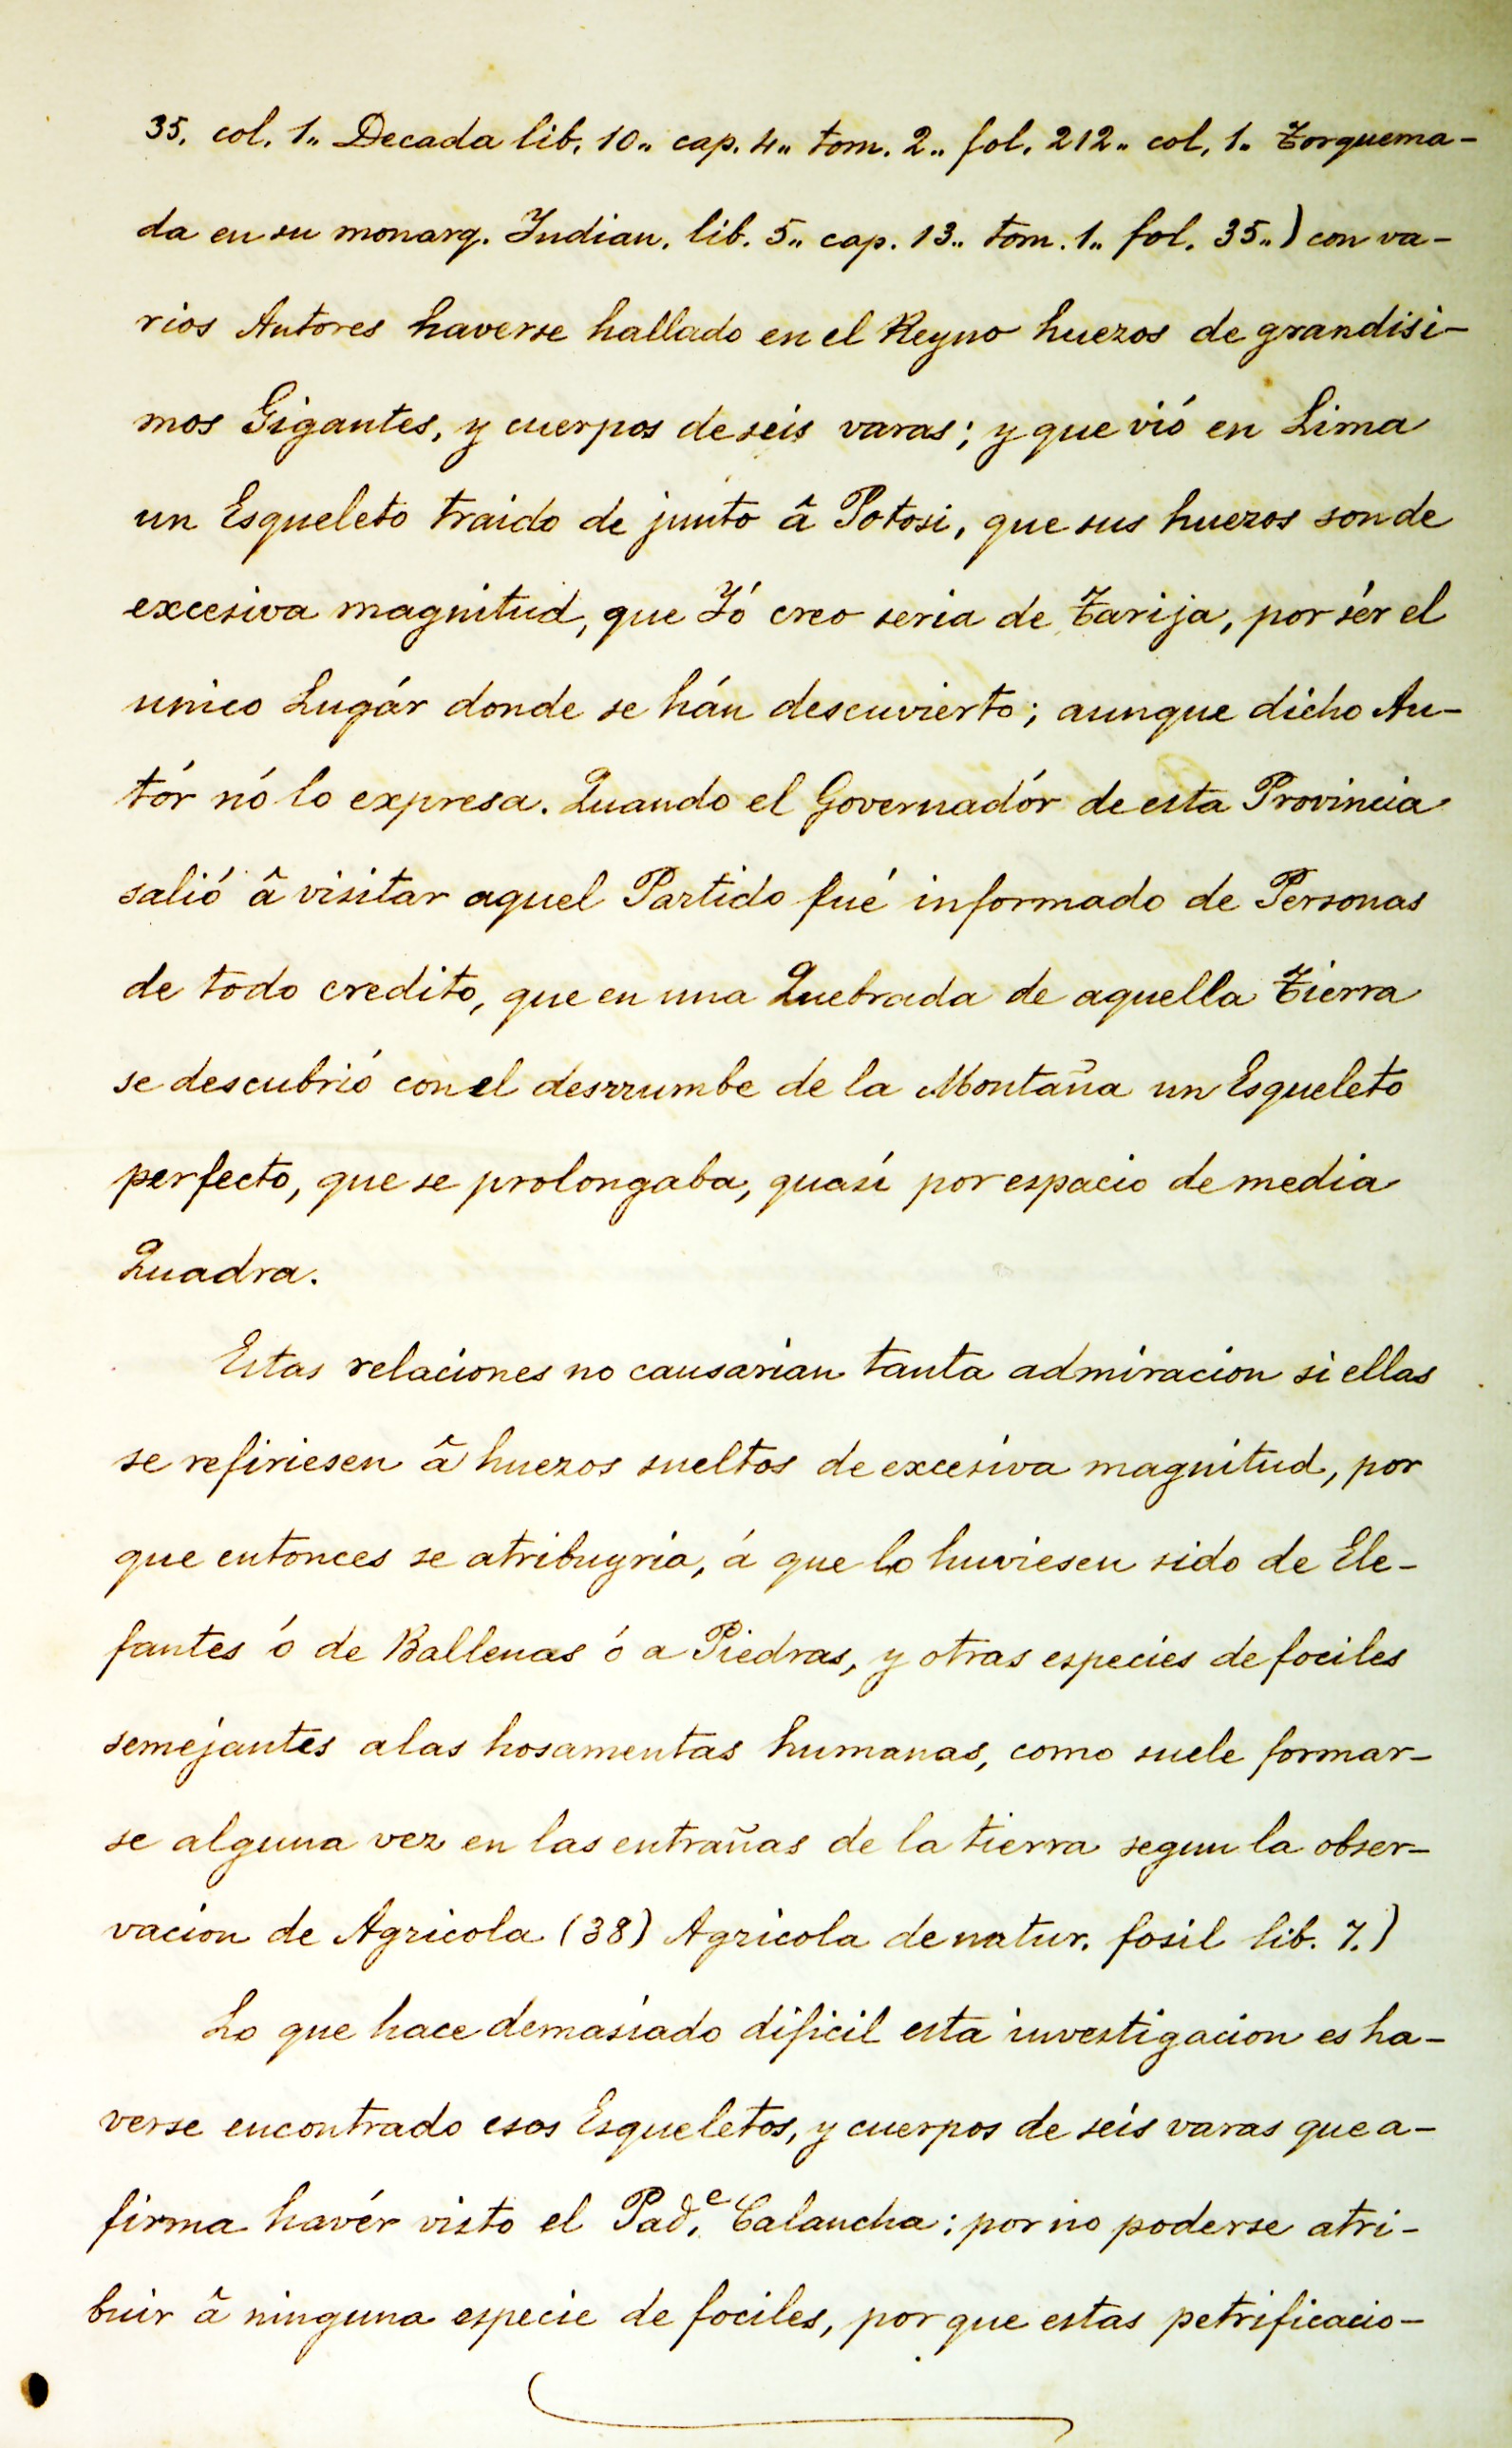 35. col. 1.. Decada lib. 10.. cap. 4.. tom. 2.. fol. 212.. col. 1. Torquema-
da en su monarq. Indian. lib. 5.. cap. 13.. tom. 1.. fol. 35..) con va-
rios Autores haverse hallado en el Reyno huezos de grandisi-
mos Gigantes, y cuerpos de seis varas; y que vió en Lima
un Esqueleto traido de junto â Potosi, que sus huezos son de
excesiva magnitud, que Yó creo seria de Tarija, por sér el
unico Lugár donde se hán descuvierto; aunque dicho Au-
tór nó lo expresa. Quando el Governadór de esta Provincia
salió â visitar aquel Partido fué informado de Personas
de todo credito, que en una Quebrada de aquella Tierra
se descubrió con el desrrumbe de la Montaña un Esqueleto
perfecto, que se prolongaba, quasi por espacio de media
Quadra.
Estas relaciones no causarian tanta admiracion si ellas
se refiriesen â huezos sueltos de excesiva magnitud, por
que entonces se atribuyria, á que lo huviesen sido de Ele-
fantes ó de Ballenas ó a Piedras, y otras especies de fociles
semejantes alas hosamentas humanas, como suele formar-
se alguna vez en las entrañas de la tierra segun la obser-
vacion de Agricola (38) Agricola de natur. fosil lib. 7.)
Lo que hace demasiado dificil esta investigacion es ha-
verse encontrado esos Esqueletos, y cuerpos de seis varas que a-
firma havér visto el Pad.ᵉ Calancha: por no poderse atri-
buir â ninguna especie de fociles, por que estas petrificacio-